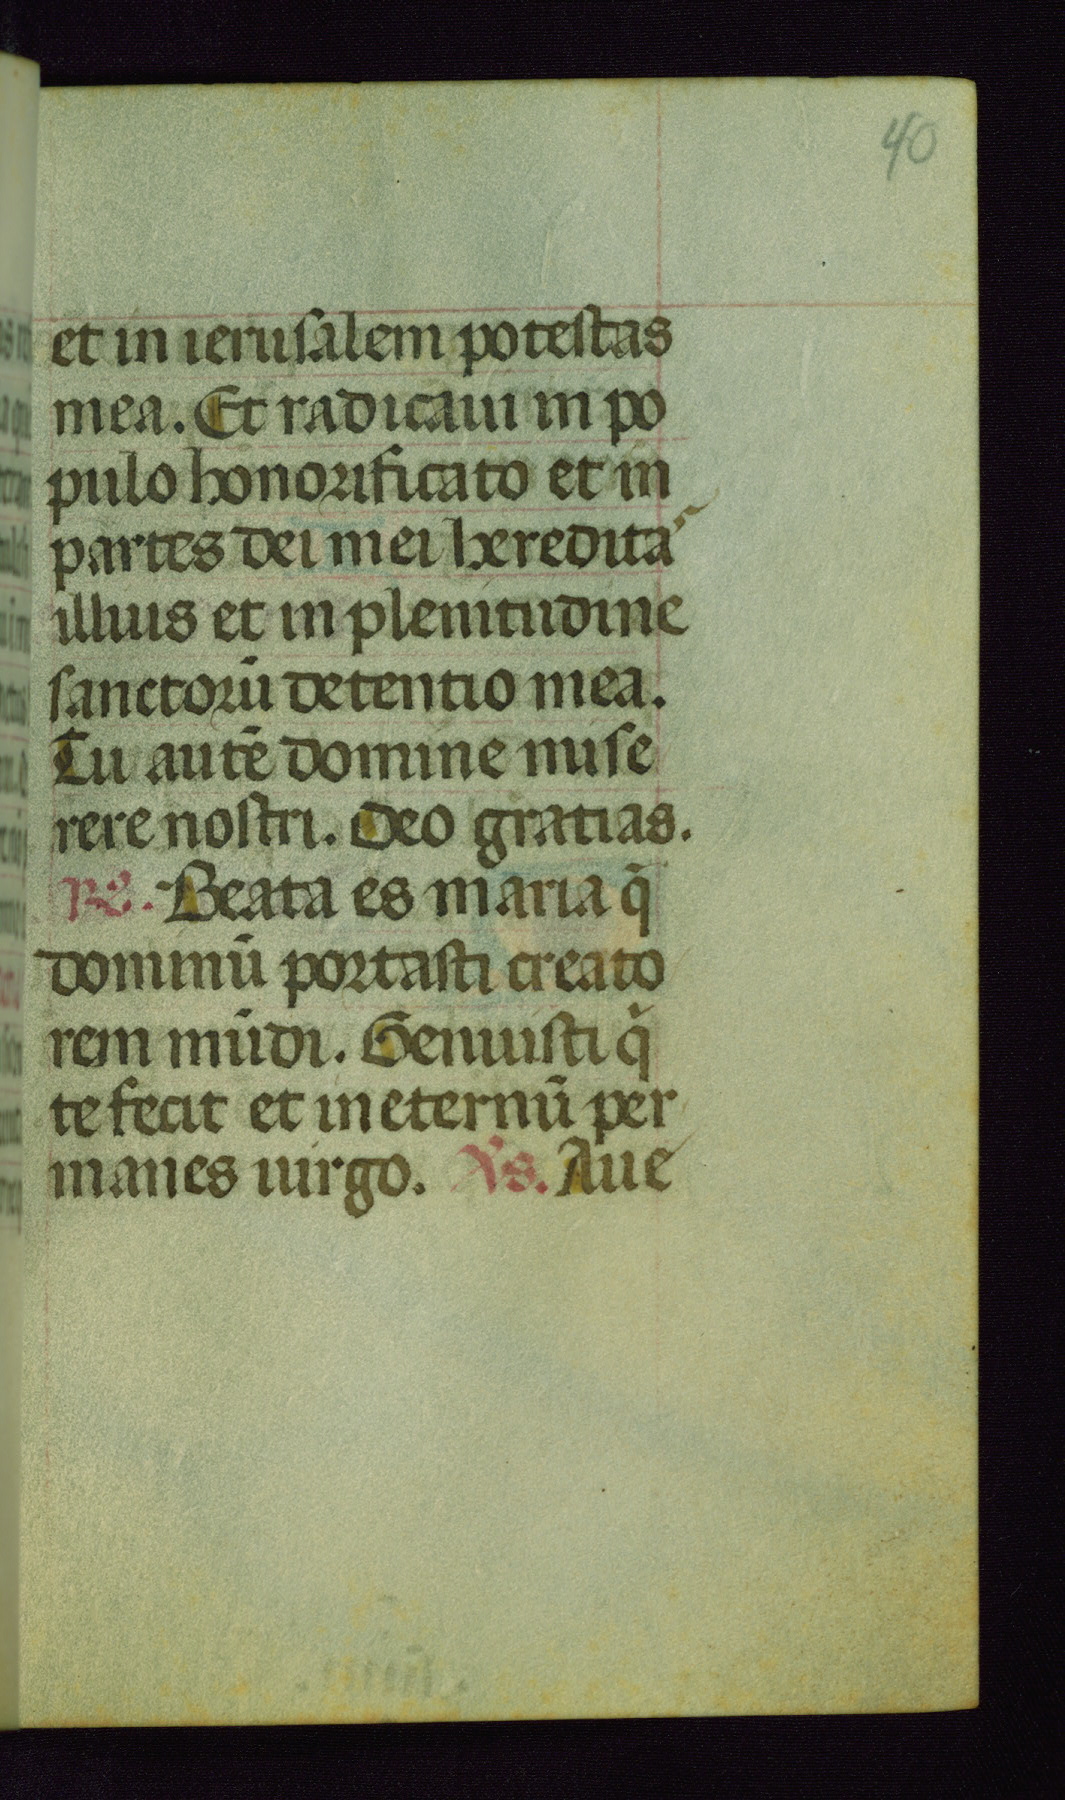 40
et in ierusalem potestas
mea. Et radicaui in po
pulo honorificato et in
partes dei mei heredita᷒
illius et in plenitudine
sanctorū detentio mea.
Tu autē domine mise
rere nostri. Deo gratias.
R̃. Beata es maria q̄
dominū portasti creato
rem mūdi. Genuisti q̄
te fecit et in eternū per
manes uirgo. V̓s. Aue